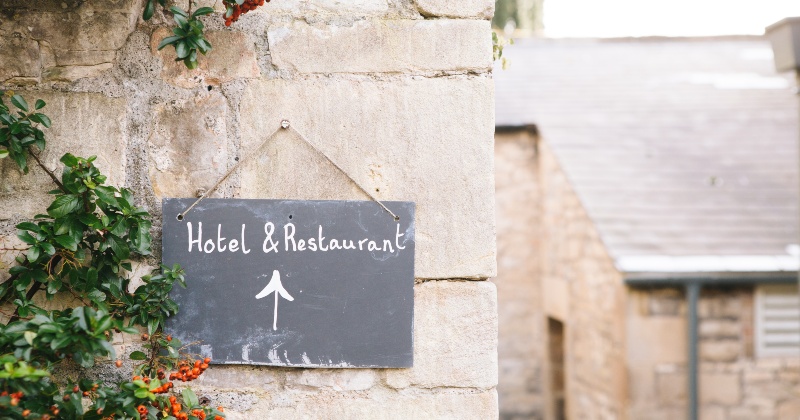 Hotel & Restaurant